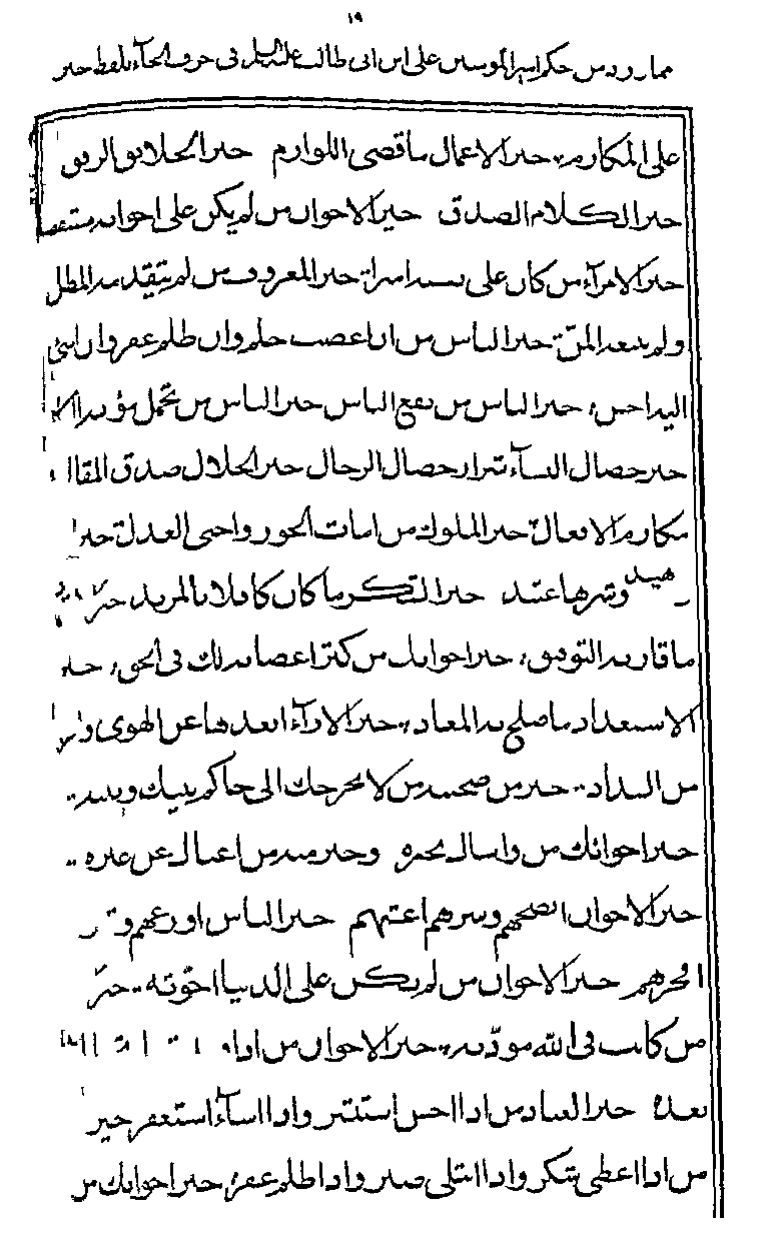 ١٩
مما ورد من حكم امير المؤمنين على ابن ابى طالب عليه السلام فى حرف الخآء بلفظ خير
على المكارم خير الاعمال ما قضى اللوازم خير الخلايق الرفق
خير الكلام الصدق خير الاخوان من لم يكن على اخوانه مستقصيا
خير الامرآء من كان على نفسه اميرا خير المعروف من لم يتقدمه المطل
ولم يتبعه المنّ خير الناس من ان اغضب حلم وان ظلم غفر وان اسئ
اليه احسن خير الناس من نفع الناس خير الناس من تحمل مؤنة
خير خصال النسآء شرار خصال الرجال خير الخلال صدق المقال
مكارم الافعال خير الملوك من امات الجور واحيى العدل خير
وشرها عتيد خير الشكر ما كان كافلا بالمزيد خير
ما قاربه التوفيق خير اخوانك من كثر اغضابه لك فى الحق خير
الاستعداد ما صلح به المعاد خير الارآء ابعدها عن الهوى
من السداد خير من صحبته من لا يحوجك الى حاكم بينك وبينه
خير اخوانك من واساك بخيره وخير منه من اغناك عن غيره
خير الاخوان انصحهم وشرهم اغشهم خير الناس اورعهم و
افجرهم خير الاخوان من لم يكن على الدنيا اخوته خير
من كانت فى الله مودته خير الاخوان من اذا
بعده خير العباد من اذا احسن استبشر واذا اسآء استغفر خير
من اذا اعطى شكر واذا ابتلى صبر واذا ظلم غفر خير اخوانك من